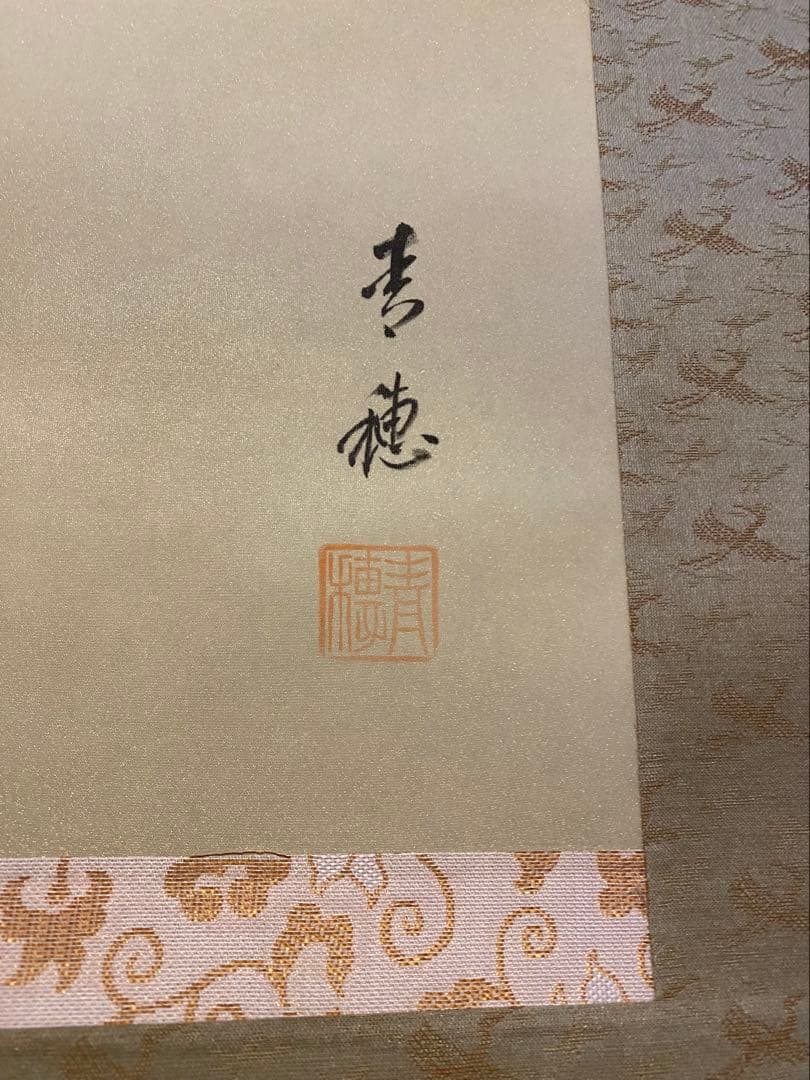 青穂
青穂